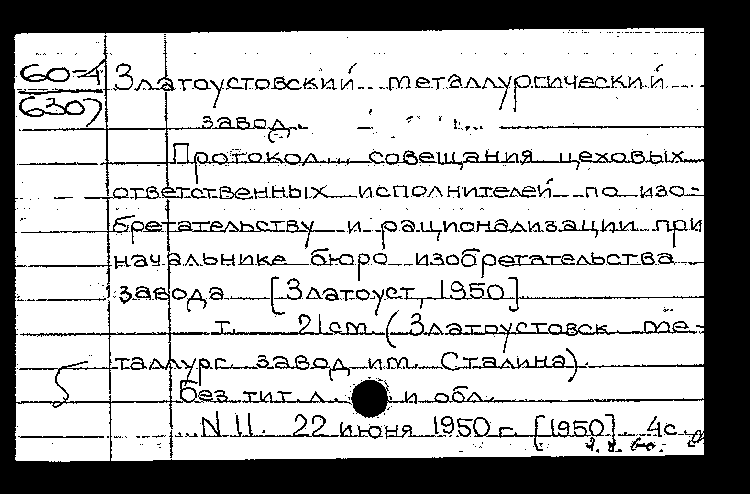 60-4 Златоустовский металлургический
6307
завод.
Протокол... совещания цеховых
ответственных исполнителей по изо-
бретательству и рационализации при
начальнике бюро изобретательства
завода [Златоуст, 1950]
т. 21см. (Златоустовск. ме-
таллург. завод им. Сталина).
Без тит. л. и обл.
N 11. 22 июня 1950 г. [1950]. 4с.